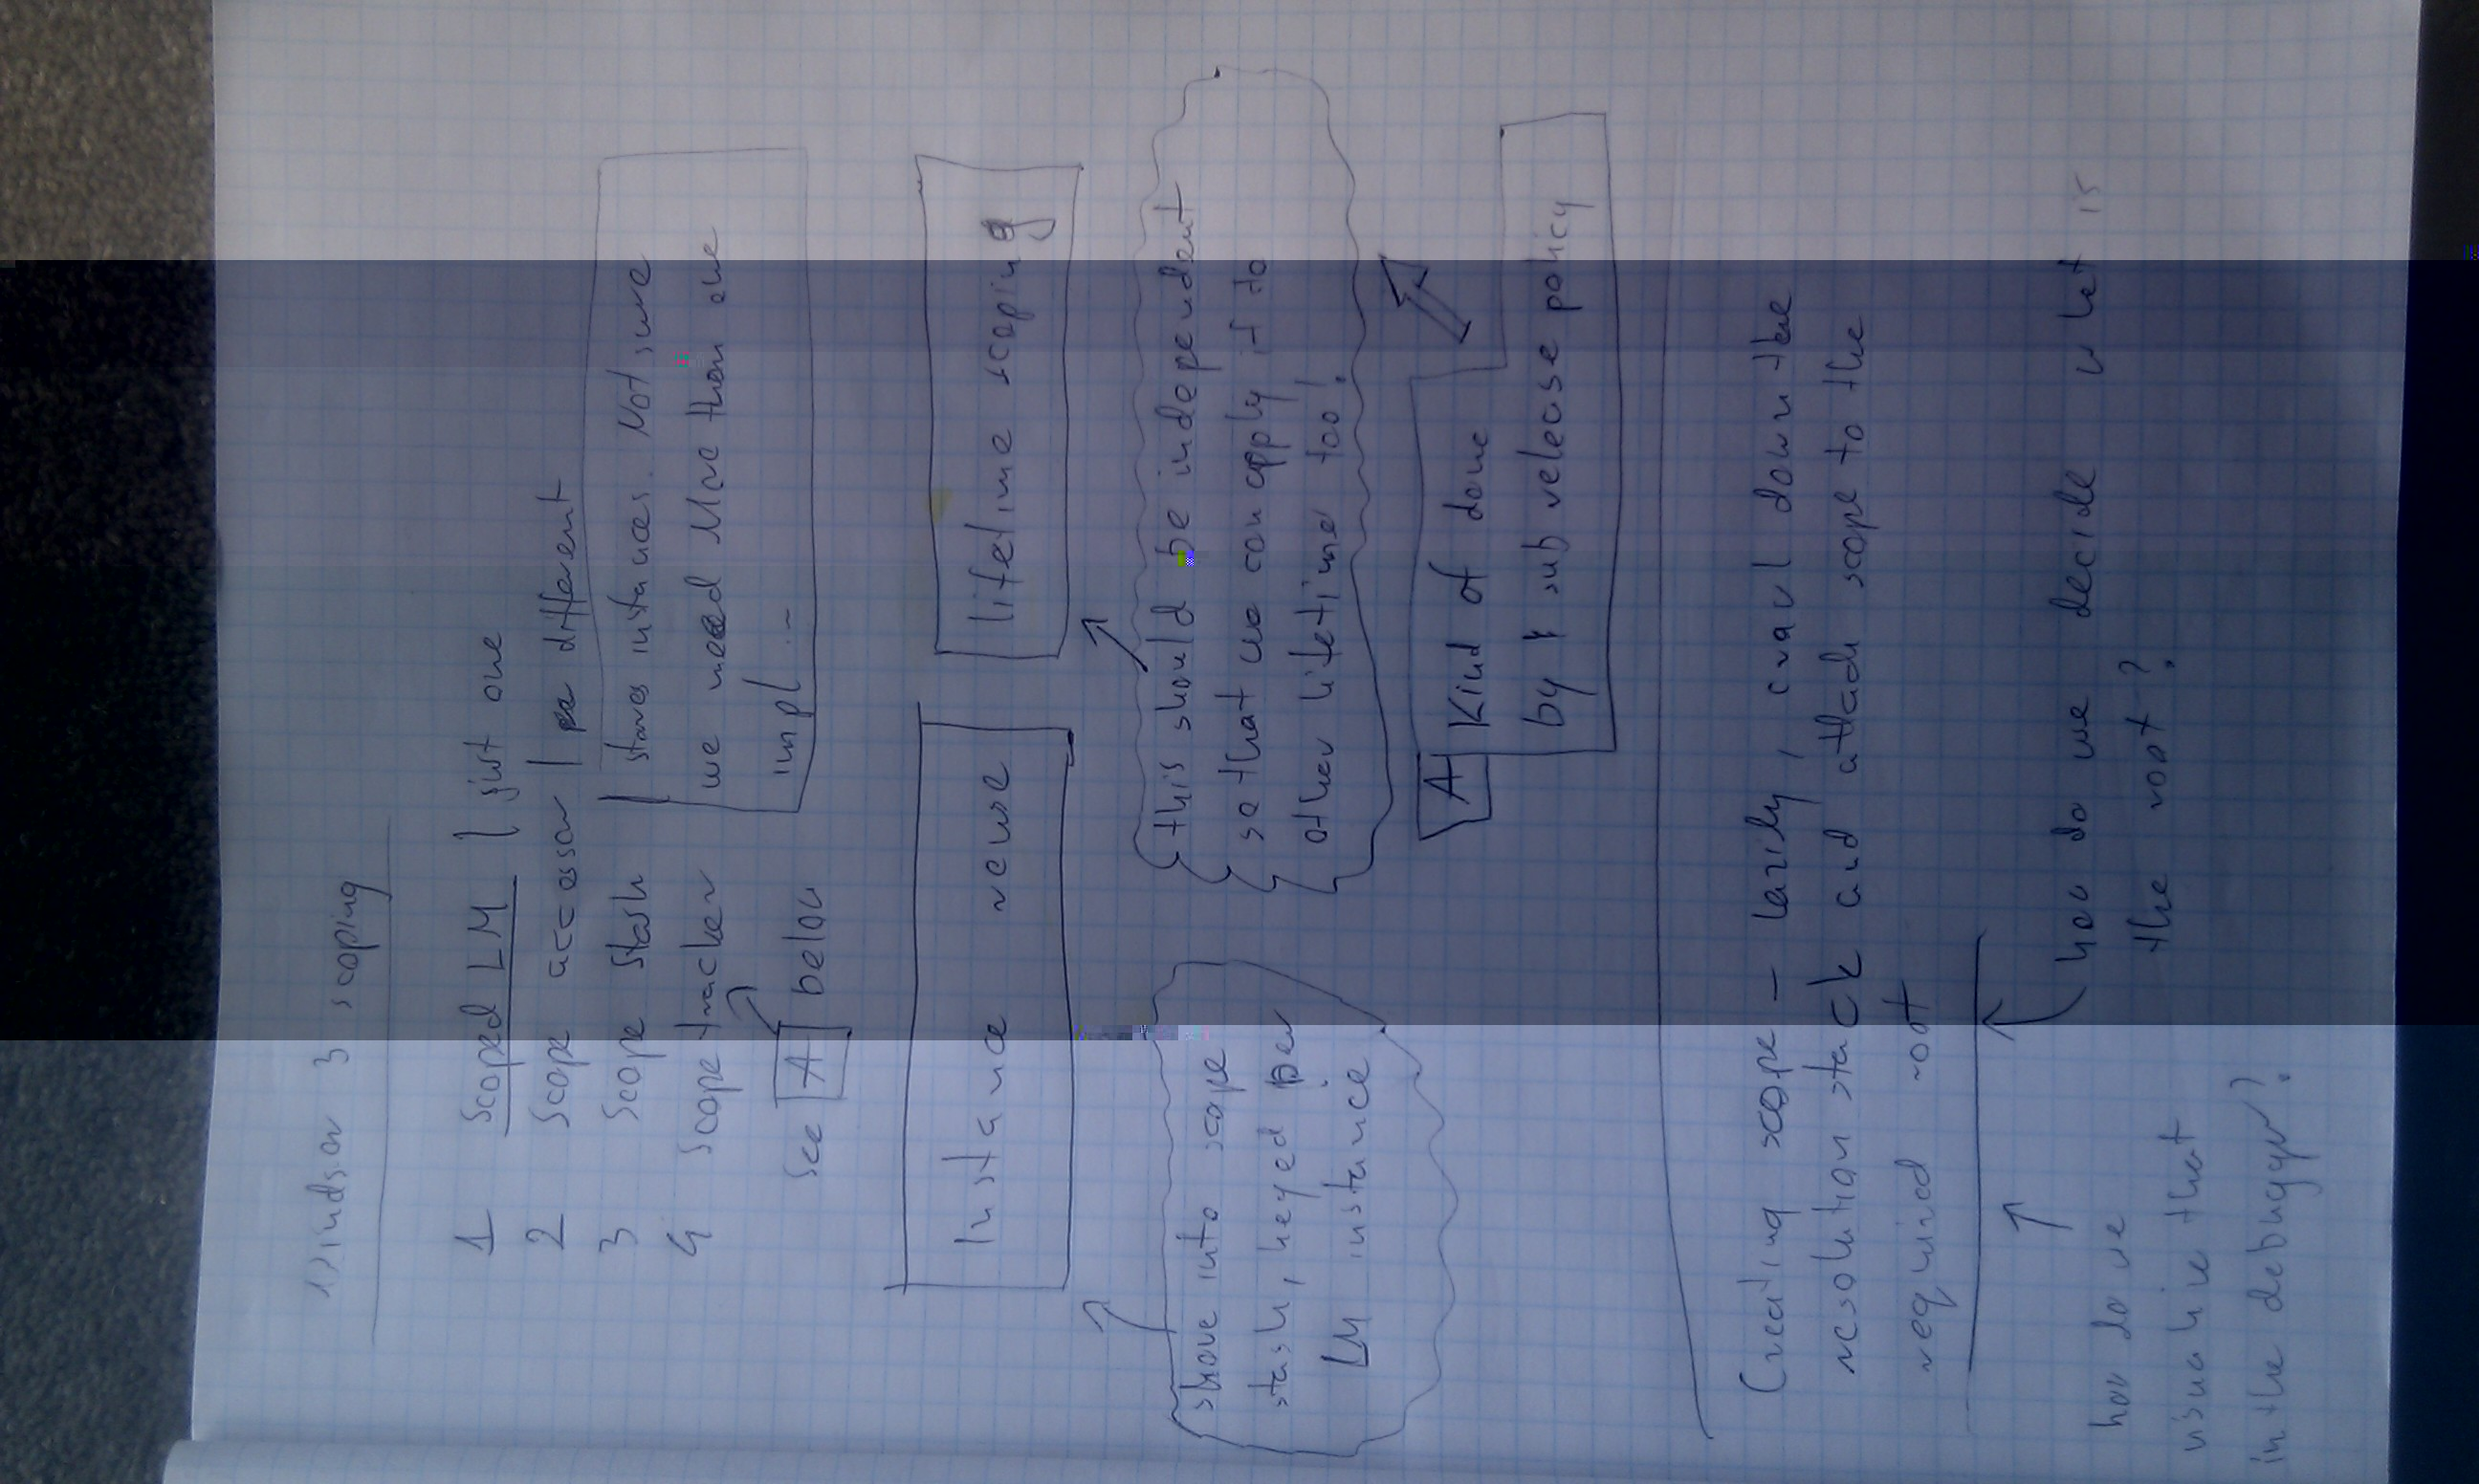 Windsor 3 scoping
1 Scoped LM | just one
2 Scope accessor | per different
3 Scope Stash | stores instances. Not sure
we need More than one
impl...
4 Scope tracker
see A below
Instance reuse
lifetime scoping
shove into scope
stash, keyed per
LM instance
this should be independent
so that we can apply it to
other lifetimes too!
A Kind of done
by sub release policy
Creating scope - lazily, crawl down the
resolution stack and attach scope to the
required root
how do we decide what is
the root?
how do we
visualize that
in the debugger?